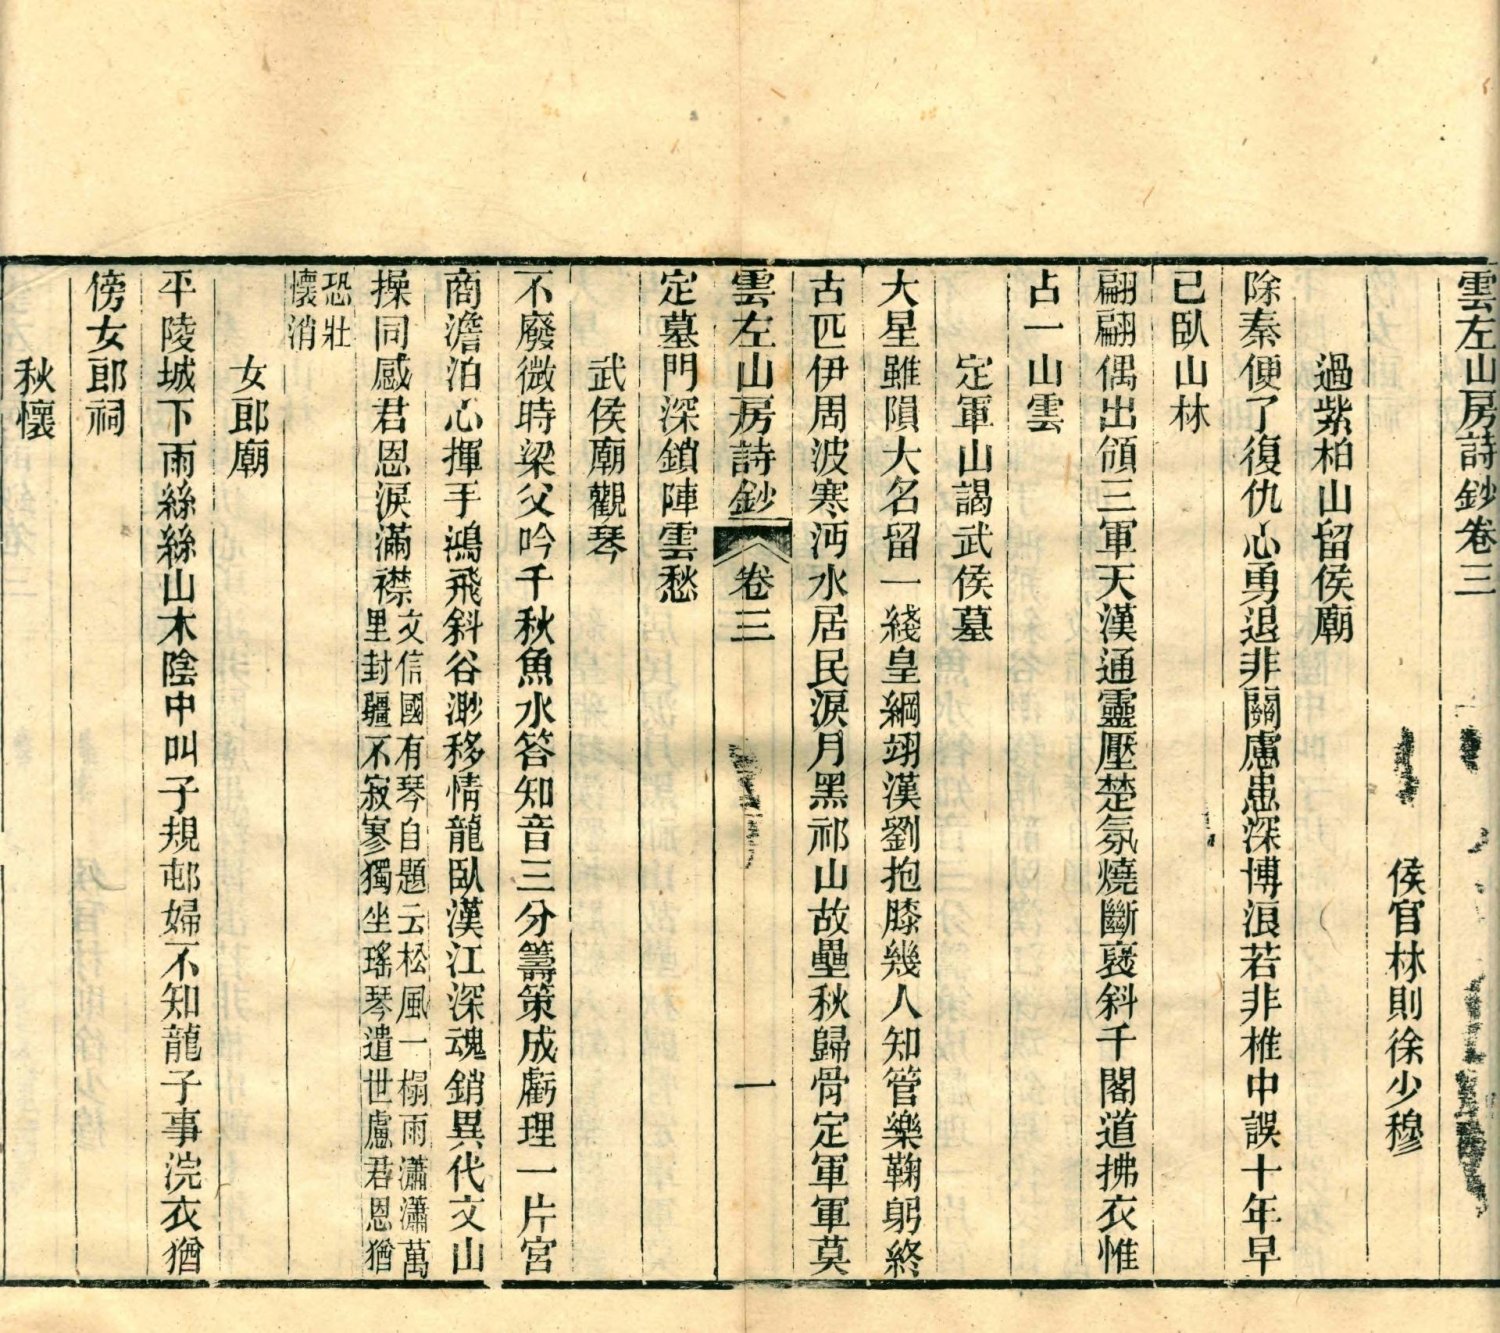 雲左山房詩鈔卷三
侯官林則徐少穆
過紫柏山留侯廟
除秦便了復仇心勇退非關慮患深博浪若非椎中誤十年早
已臥山林
翩翩偶出領三軍天漢通靈壓楚氛燒斷襃斜千閣道拂衣惟
占一山雲
定軍山謁武侯墓
大星雖隕大名留一綫皇綱翊漢劉抱膝幾人知管樂鞠躬終
古匹伊周波寒沔水居民淚月黑祁山故壘秋歸骨定軍軍莫
雲左山房詩鈔 卷三 一
定墓門深鎖陣雲愁
武侯廟觀琴
不廢微時梁父吟千秋魚水答知音三分籌策成虧理一片宮
商澹泊心揮手鴻飛斜谷渺移情龍臥漢江深魂銷異代文山
操同感君恩淚滿襟
文信國有琴自題云松風一榻雨瀟瀟萬
里封疆不寂寥獨坐瑤琴遣世慮君恩猶
恐壯
懷消
女郎廟
平陵城下雨絲絲山木陰中叫子規邨婦不知龍子事浣衣猶
傍女郎祠
秋懷